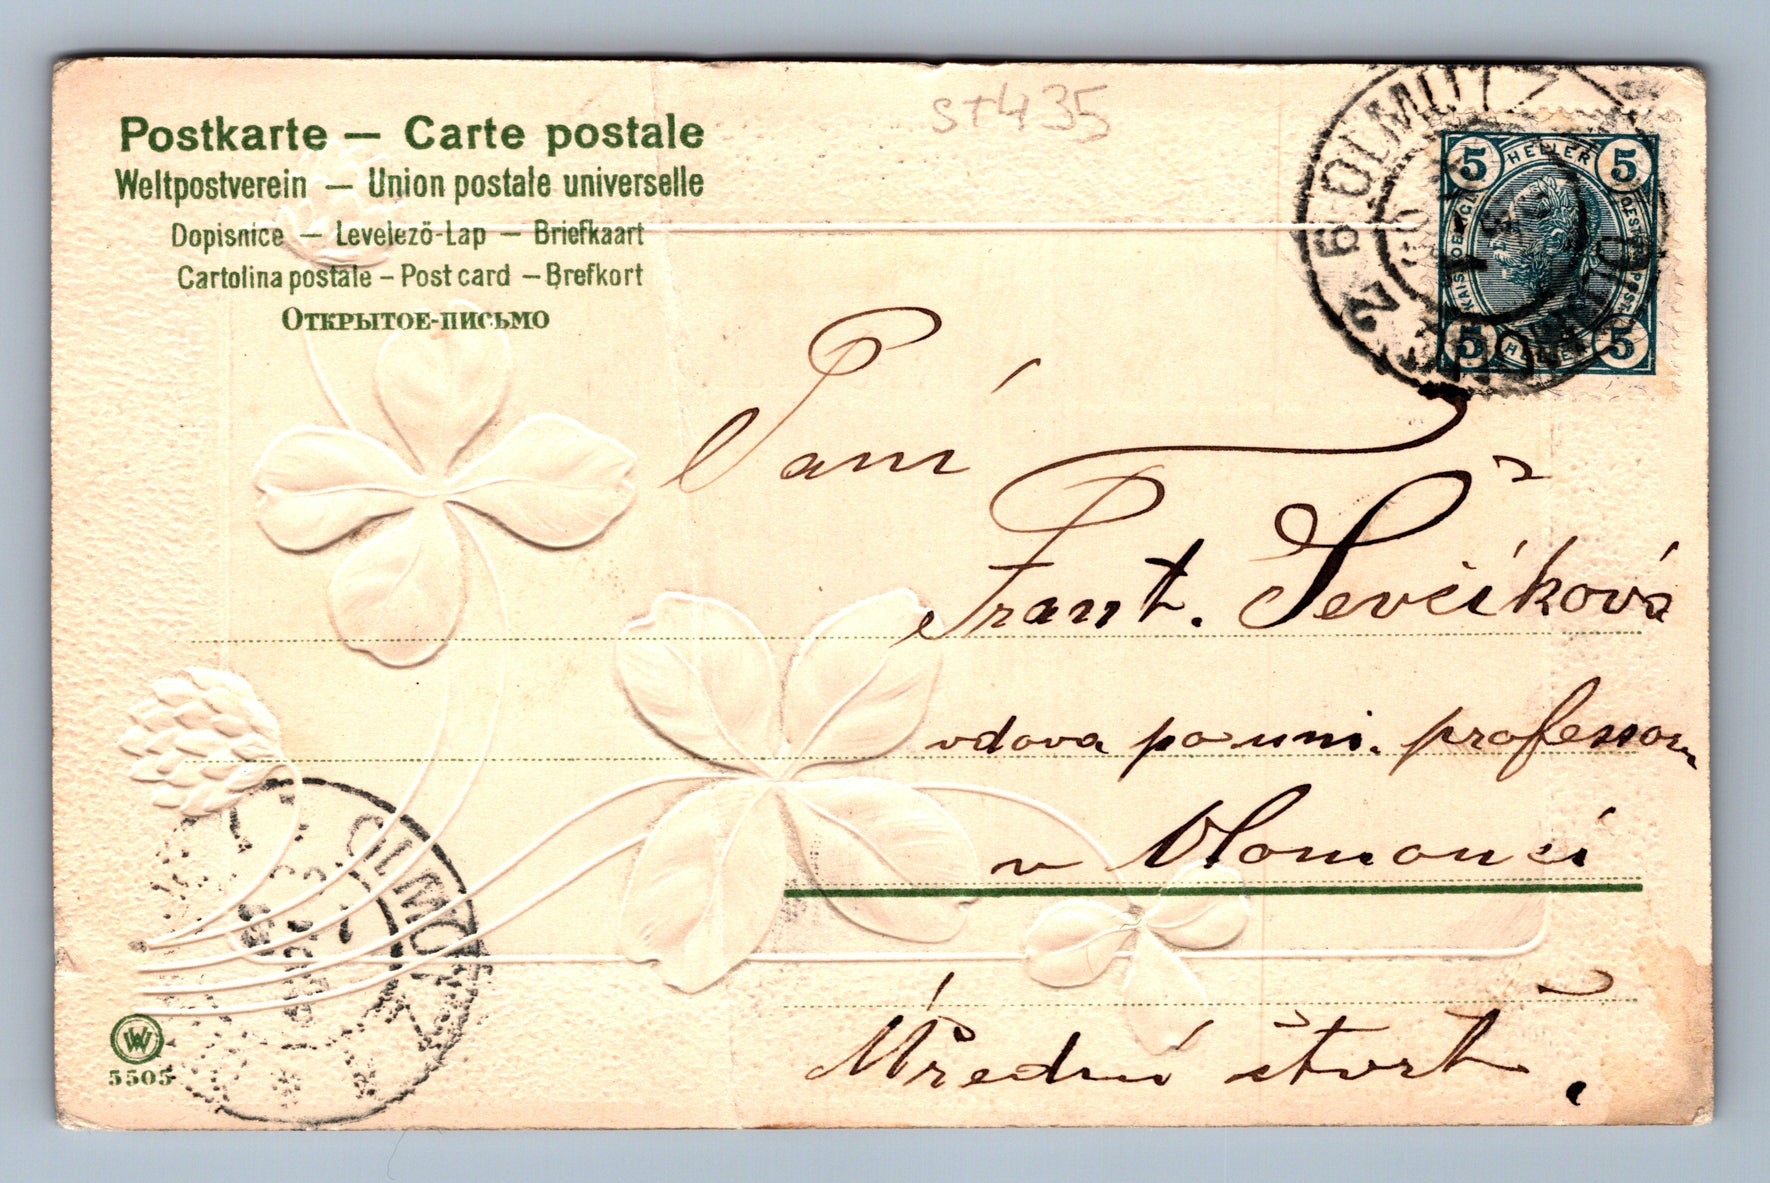 Postkarte — Carte postale
Weltpostverein — Union postale universelle
Dopisnice — Levelező-Lap — Briefkaart
Cartolina postale – Post card – Brefkort
Открытое-письмо
st435
OLMÜTZ
5 HELLER 5
5 HELLER 5
Paní
Frant. Ševčíková
vdova po uni. professor
v Olomouci
Úřední čtvrť.
OLMÜTZ
WW
5505